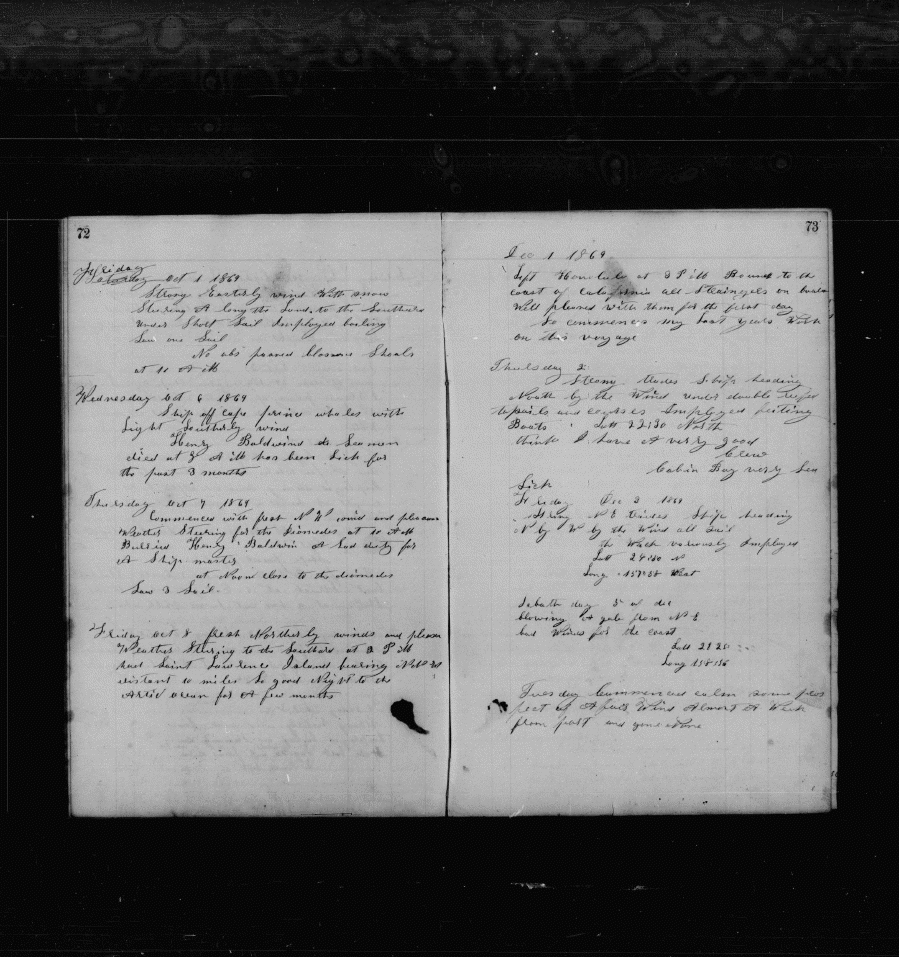 72
Friday
Saturday Oct 1 1869
Strong Easterly wind With snow
Steering A long the Land to the Southard
under Short Sail Imployed boiling
Saw one Sail
No obs passed blossom Shoals
at 10 A M
Wednesday Oct 6 1869
Ship off cape prince whales with
Light Southerly wind
Henry Baldwind Seaman
died at 8 A M has been Sick for
the past 3 months
Thursday Oct 7 1869
Commences with fresh N W wind and pleasant
Weather Steering for the diomedes at 10 A M
Burried Henry Baldwin A Sad duty for
A Ship master
at Noon close to the diomedes
Saw 3 Sail
Friday Oct 8 fresh Northerly winds and pleasan
Weather Stering to the Southard at 2 P M
had Saint Lawrence Island bearing
distant 10 miles So good Night to the
Artic ocean for A few months
73
Dec 1 1869
Left Honolulu at 3 P M Bound to the
coast of California all Straingels on board
Well pleased with them for the first day
So commences my last years Work
on this voyage
Thursday 2
Strong trades Ship heading
North by the Wind under double reefed
topsails and courses Imployed fitting
Boats Latt 22:30 North
think I have A very good
Crew
Cabin Boy very Sea
Sick
Friday Dec 3 1869
Strong N E trades Ship heading
N by W by the Wind all Sail
the Watch variously Imployed
Latt 24:30 N
Long 157:58 West
Sabath day 5 of dec
blowing A gale from N E
bad Winds for the coast
Latt 28 28
Long 158:36
Tuesday Commences calm some pros
pect of A fair Wind Almost A Week
from port and gone None